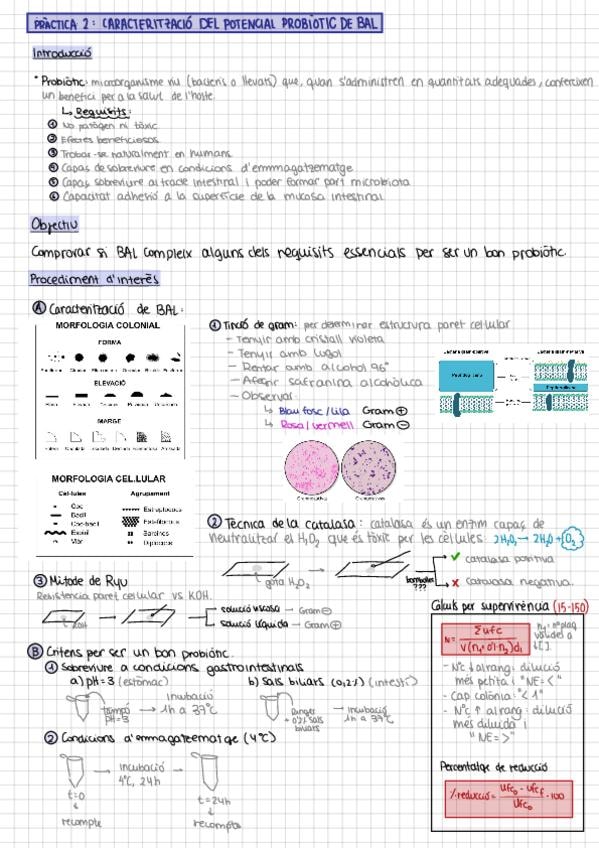 PRÀCTICA 2: CARACTERITZACIÓ DEL POTENCIAL PROBIÒTIC DE BAL
Introducció
* Probiòtic: microorganisme viu (bacteris o llevats) que, quan s'administren en quantitats adequades, confereixen
un benefici per a la salut de l'hoste.
↳ Requisits:
① No patògen ni tòxic
② Efectes beneficiosos
③ Trobar-se naturalment en humans
④ Capaç de sobreviure en condicions d'emmmagatzematge
⑤ Capaç sobreviure al tracte intestinal i poder formar part microbiota
⑥ Capacitat adhesió a la superfície de la mucosa intestinal
Objectiu
Comprovar si BAL compleix alguns dels requisits essencials per ser un bon probiòtic.
Procediment d'interès
Ⓐ Caracterització de BAL:
MORFOLOGIA COLONIAL
FORMA
ELEVACIÓ
MARGE
MORFOLOGIA CEL.LULAR
Cèl·lules
Agrupament
Coc
Estreptococs
Bacil
Estafilococs
Coc-bacil
Sarcines
Espiril
Diplococs
Vibri
① Tinció de gram: per determinar estructura paret cel·lular
- Tenyir amb cristall violeta
- Tenyir amb lugol
- Rentar amb alcohol 96°
- Afegir safranina alcohòlica
- Observar:
↳ Blau fosc/lila Gram ⊕
↳ Rosa/vermell Gram ⊖
② Tècnica de la catalasa: catalasa és un enzim capaç de
neutralitzar el H₂O₂ que és tòxic per les cèl·lules: 2H₂O₂ → 2H₂O + O₂
gota H₂O₂
bombolles
???
✓ catalasa positiva
✗ catalasa negativa.
③ Mètode de Ryu
Resistència paret cel·lular vs KOH.
KOH
solució viscosa → Gram ⊖
solució líquida → Gram ⊕
Ⓑ Criteris per ser un bon probiòtic.
① Sobreviure a condicions gastrointestinals
a) pH=3 (estómac)
tampó
pH=3
incubació
1h a 37°C
b) Sals biliars (0,2%) (intestí)
Ringer
+ 0,2% sals
biliars
incubació
1h a 37°C
② Condicions d'emmagatzematge (4°C)
t=0
recompte
incubació
4°C, 24h
t=24h
recompte
Càlculs per supervivència (15-150)
N = Σufc / V(n₁ + 0'1·n₂)d₁
- Nºc ↓ al rang: dilució
més petita i "NE = <"
- Cap colònia: "< 1"
- Nºc ↑ al rang: dilució
més diluïda i
"NE = >"
Percentatge de reducció
% reducció = (ufc₀ - ufcf / ufc₀) · 100